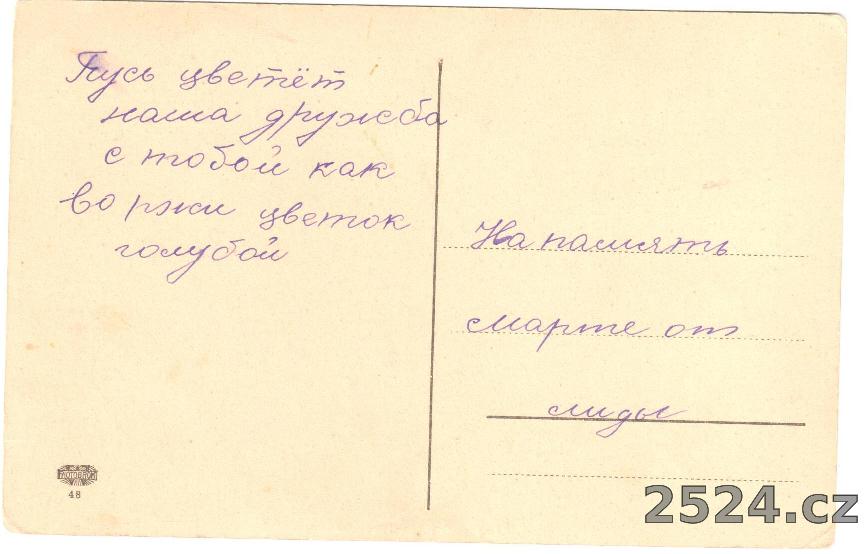 Пусь цветёт
наша дружба
с тобой как
во ржи цветок
голубой
На память
смарте от
лиды
48
2524.cz